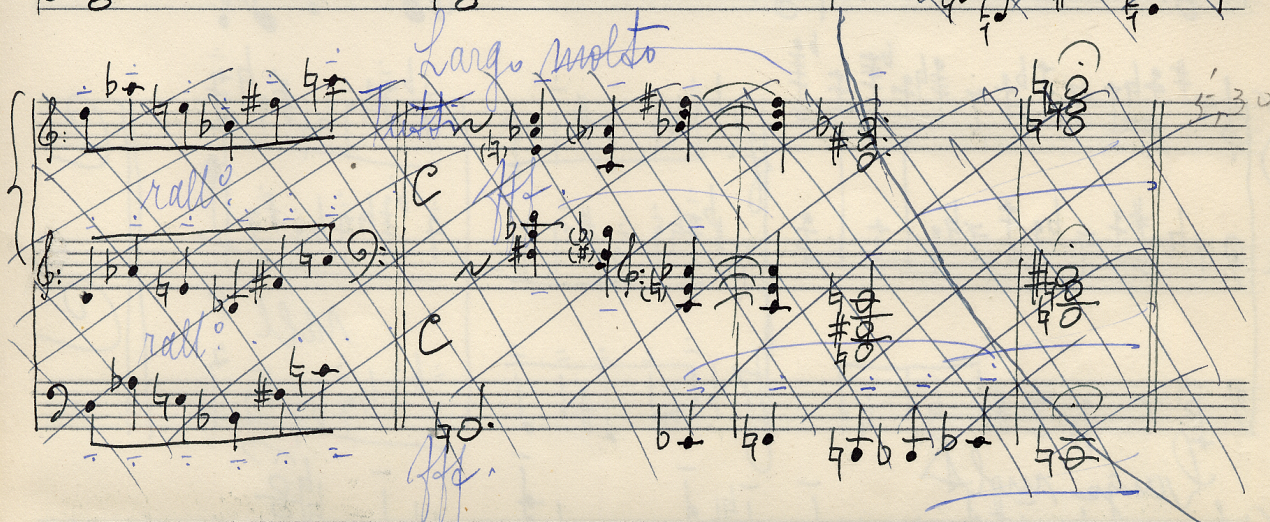 Largo molto
Tutti
rall:
C
fff.
rall:
C
fff.
5,30